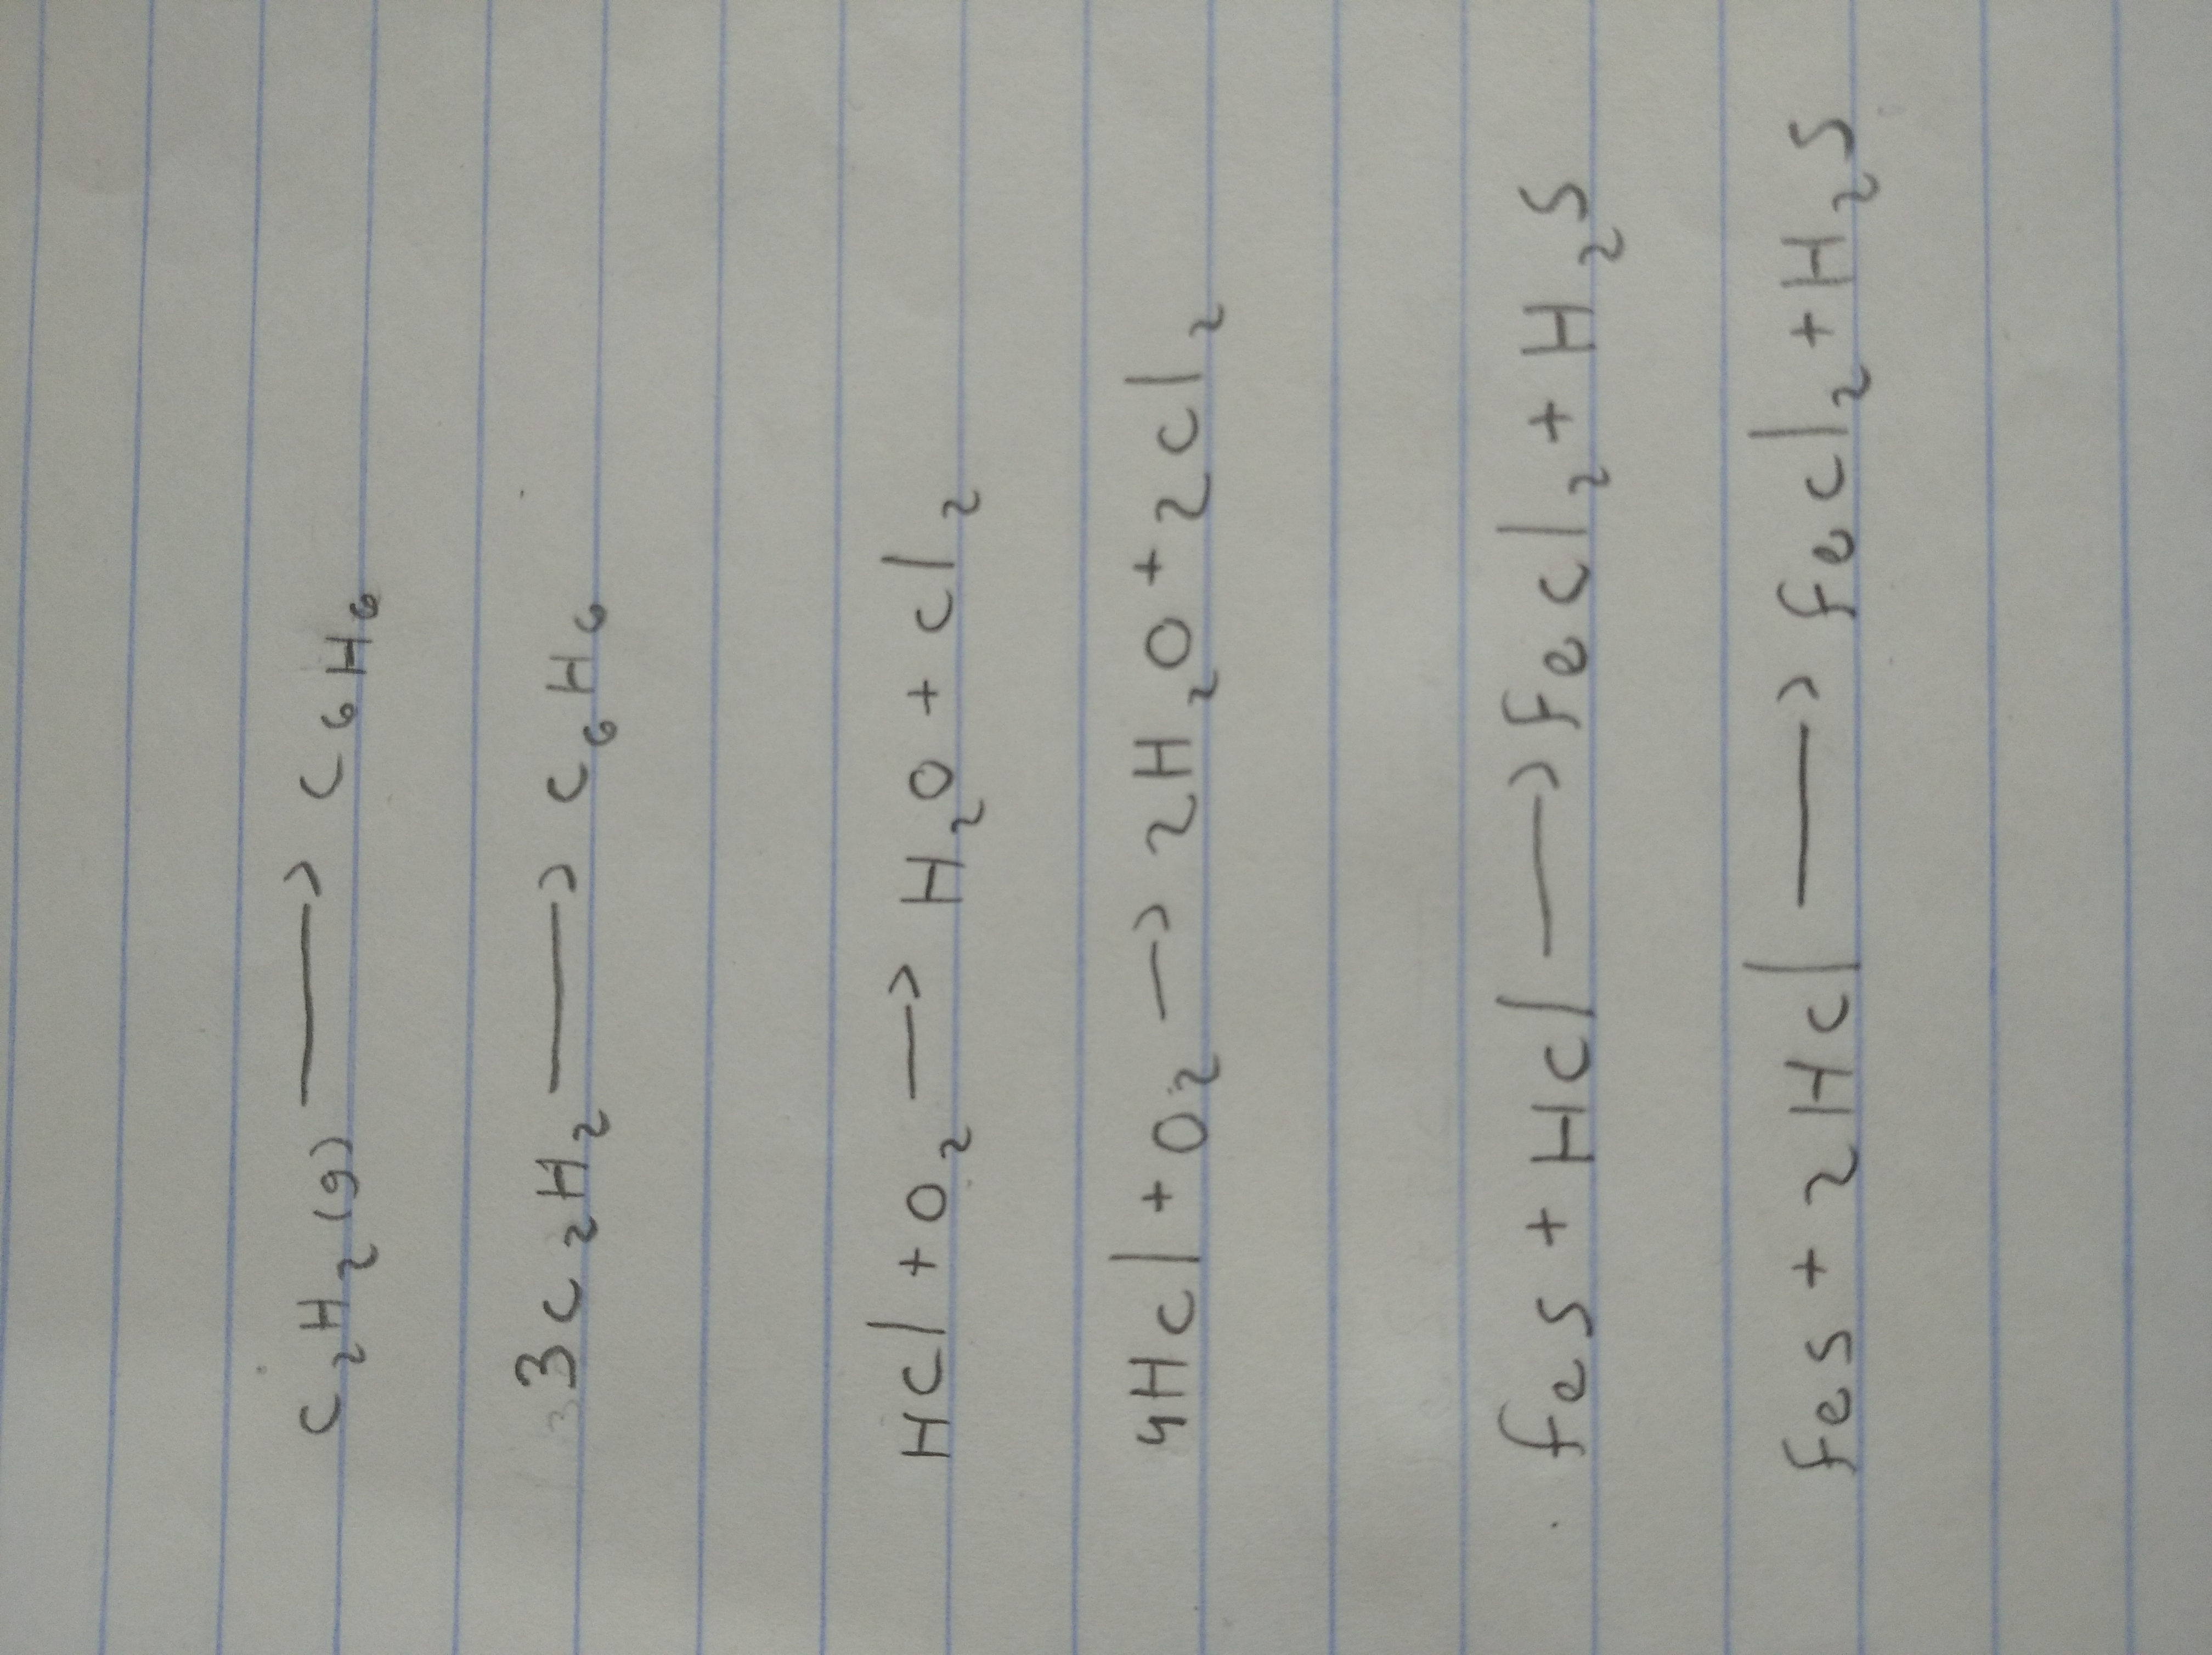 C₂H₂(g) ⟶ C₆H₆
3C₂H₂ ⟶ C₆H₆
HCl + O₂ → H₂O + Cl₂
4HCl + O₂ → 2H₂O + 2Cl₂
FeS + HCl ⟶ FeCl₂ + H₂S
FeS + 2HCl ⟶ FeCl₂ + H₂S